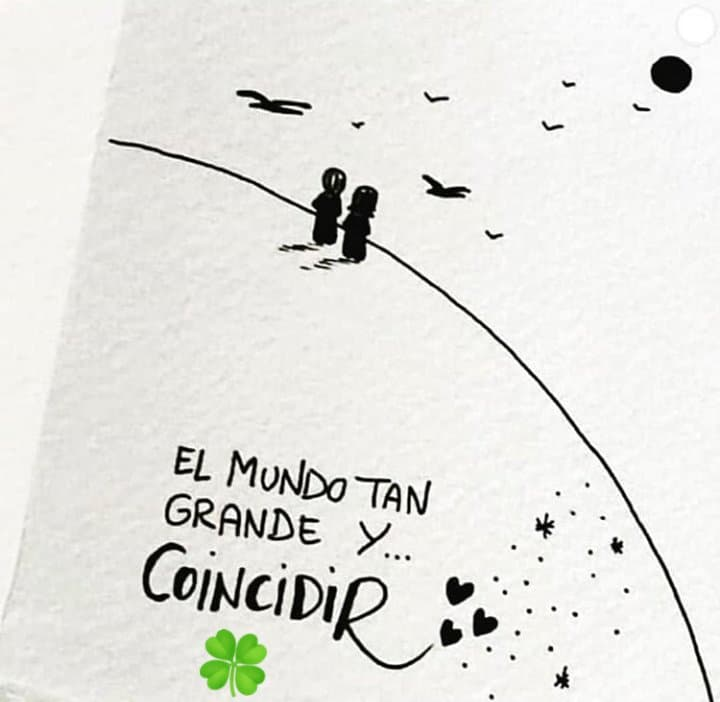 EL MUNDO TAN
GRANDE Y...
COINCIDIR